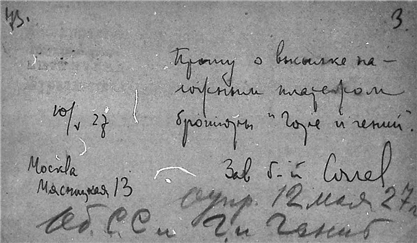 43.
3.
Прошу о высылке на-
ложным платежом
брошюры "Горе и гений".
10/V 27
Зав б-й
Москва
Мясницкая 13
отпр. 12 мая 27 г.
Об. С. С и Г. и Гениб